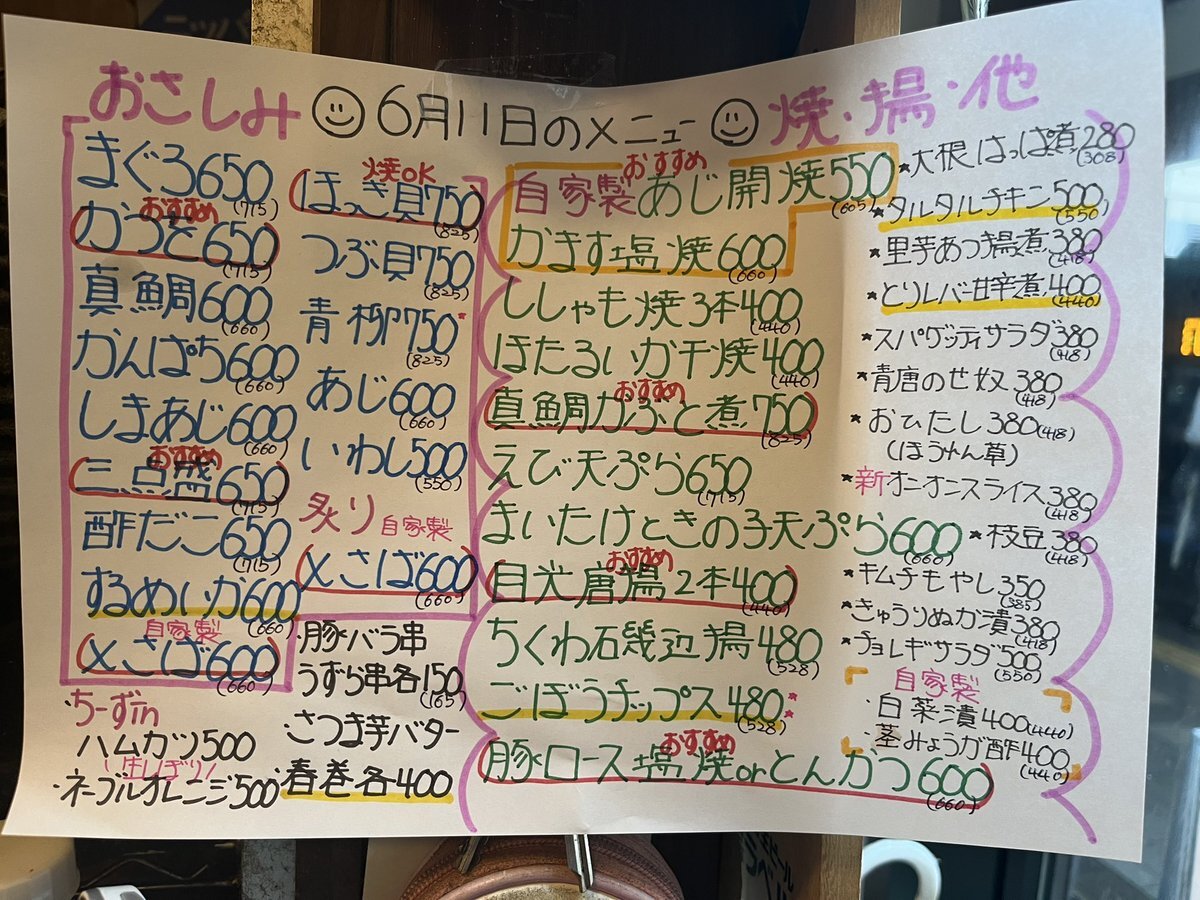 おさしみ
6月11日のメニュー
焼・揚・他
まぐろ650
(715)
おすすめ
かつを650
(715)
真鯛600
(660)
かんぱち600
(660)
しまあじ600
(660)
おすすめ
三点盛650
(715)
酢だこ650
(715)
するめいか600
(660)
自家製
〆さば600
(660)
焼OK
ほっき貝750
(825)
つぶ貝750
(825)
青柳750
(825)
あじ600
(660)
いわし500
(550)
炙り 自家製
〆さば600
(660)
・ちーずin
ハムカツ500
・ネーブルオレンジ500
・豚バラ串
うずら串各150
(165)
・さつま芋バター
春巻各400
おすすめ
自家製あじ開焼550
(605)
かます塩焼600
(660)
ししゃも焼3本400
(440)
ほたるいか干焼400
(440)
おすすめ
真鯛かぶと煮750
(825)
えび天ぷら650
(715)
まいたけときの子天ぷら600
(660)
おすすめ
目光唐揚2本400
(440)
ちくわ石幾辺揚480
(528)
ごぼうチップス480
(528)
おすすめ
豚ロース塩焼orとんかつ600
(660)
*大根はっぱ煮280
(308)
*タルタルチキン500
(550)
*里芋あつ揚煮380
(418)
*とりレバー甘辛煮400
(440)
*スパゲッティサラダ380
(418)
*青唐のせ奴380
(418)
*おひたし380(418)
(ほうれん草)
*新オニオンスライス380
(418)
*枝豆380
(418)
*キムチもやし350
(385)
*きゅうりぬか漬380
(418)
*チョレギサラダ500
(550)
自家製
・白菜漬400(440)
・茎みょうが酢400
(440)